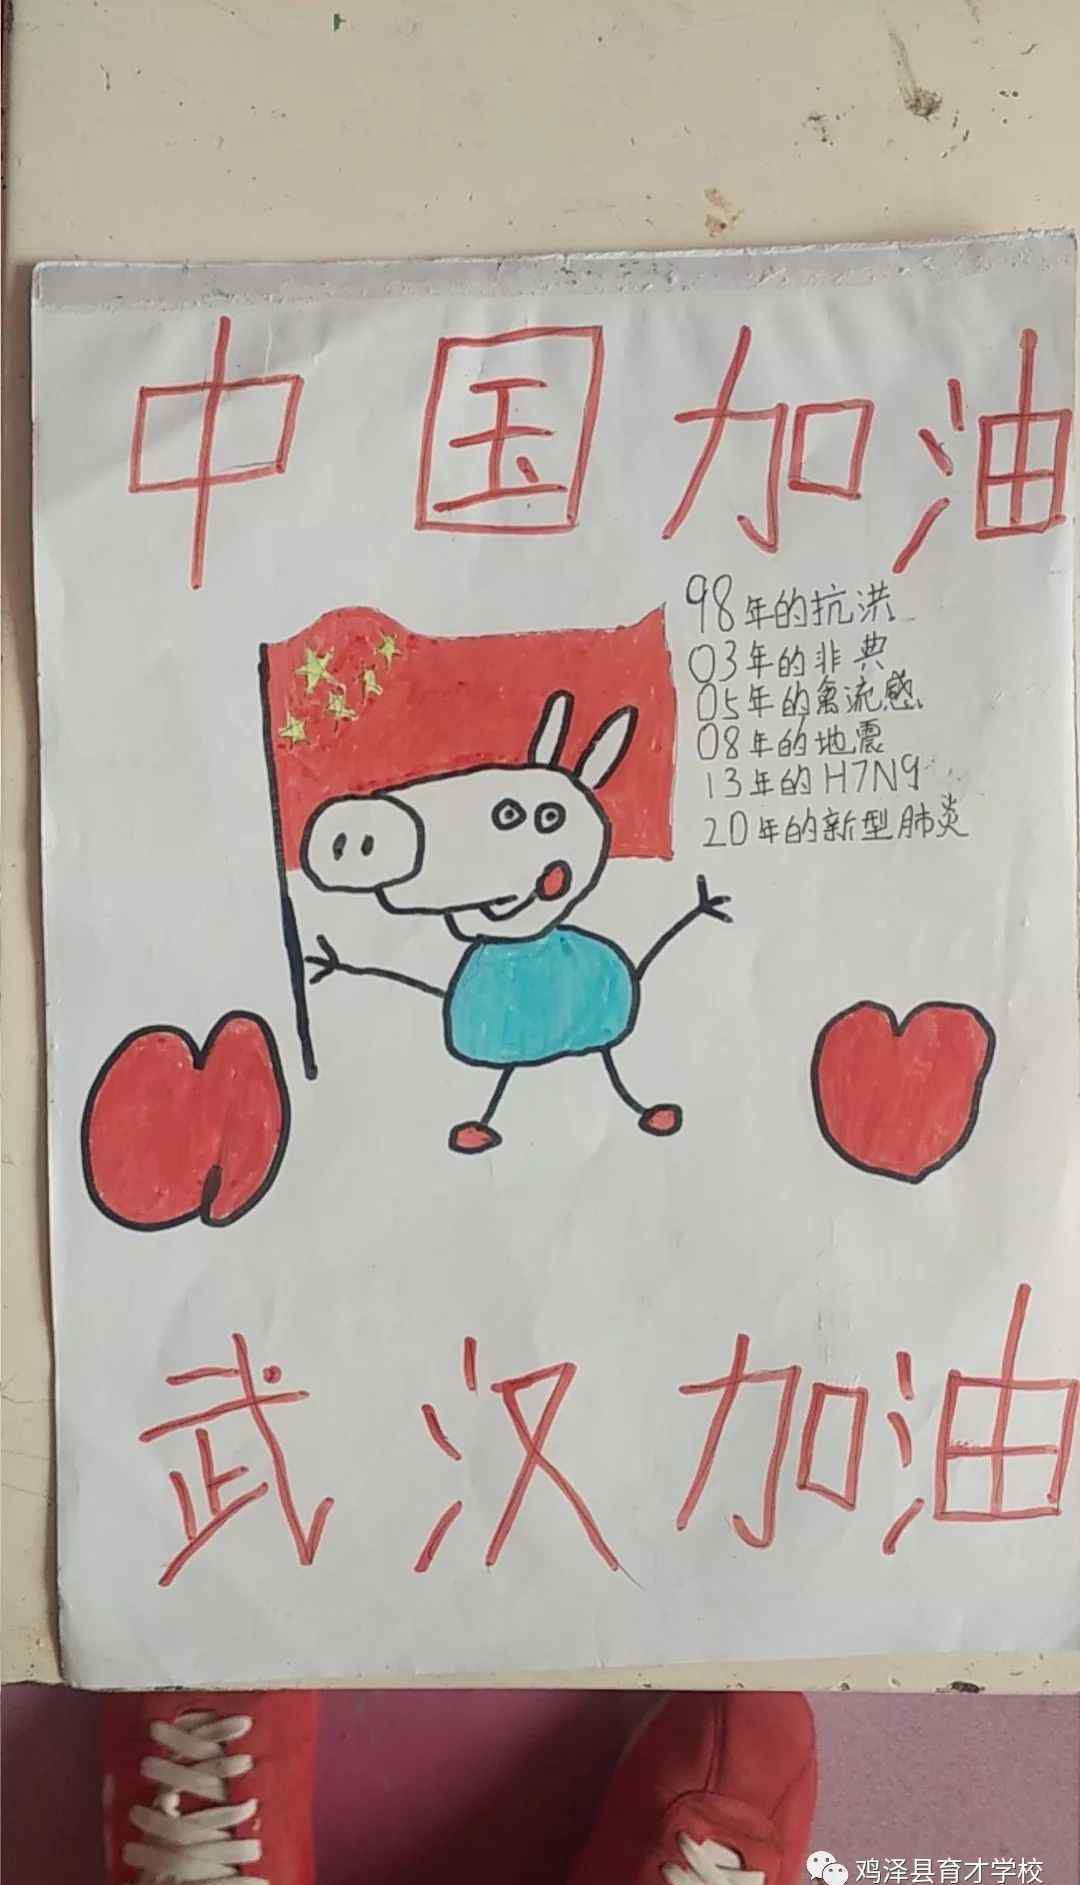 中国加油
98年的抗洪
03年的非典
05年的禽流感
08年的地震
13年的H7N9
20年的新型肺炎
武汉加油
鸡泽县育才学校